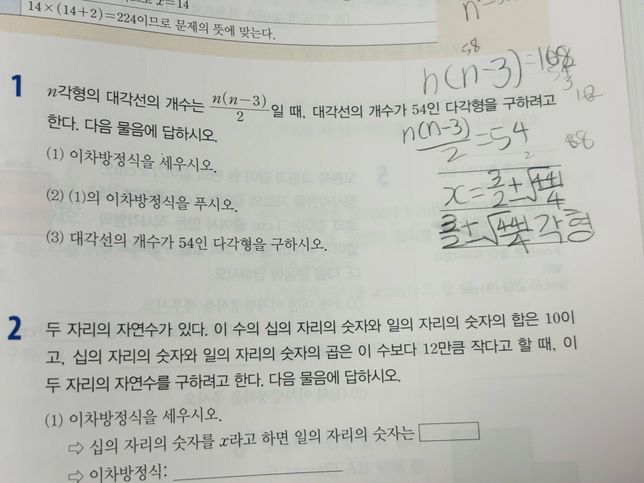 14×(14+2)=224이므로 문제의 뜻에 맞는다.
n(n-3)=108
1 n각형의 대각선의 개수는 n(n-3)/2일 때, 대각선의 개수가 54인 다각형을 구하려고
한다. 다음 물음에 답하시오.
n(n-3)/2=54
(1) 이차방정식을 세우시오.
(2) (1)의 이차방정식을 푸시오.
x=3/2+√441/4
(3) 대각선의 개수가 54인 다각형을 구하시오.
3/2+√441/4각형
2 두 자리의 자연수가 있다. 이 수의 십의 자리의 숫자와 일의 자리의 숫자의 합은 10이
고, 십의 자리의 숫자와 일의 자리의 숫자의 곱은 이 수보다 12만큼 작다고 할 때, 이
두 자리의 자연수를 구하려고 한다. 다음 물음에 답하시오.
(1) 이차방정식을 세우시오.
⇨ 십의 자리의 숫자를 x라고 하면 일의 자리의 숫자는
⇨ 이차방정식: